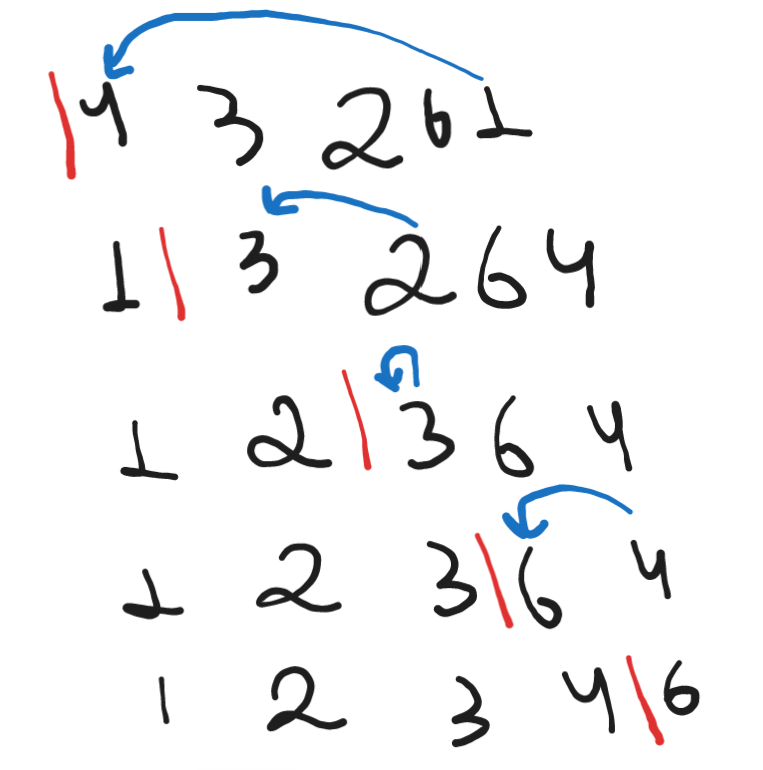 |4 3 2 6 1
1 | 3 2 6 4
1 2 | 3 6 4
1 2 3 | 6 4
1 2 3 4 | 6